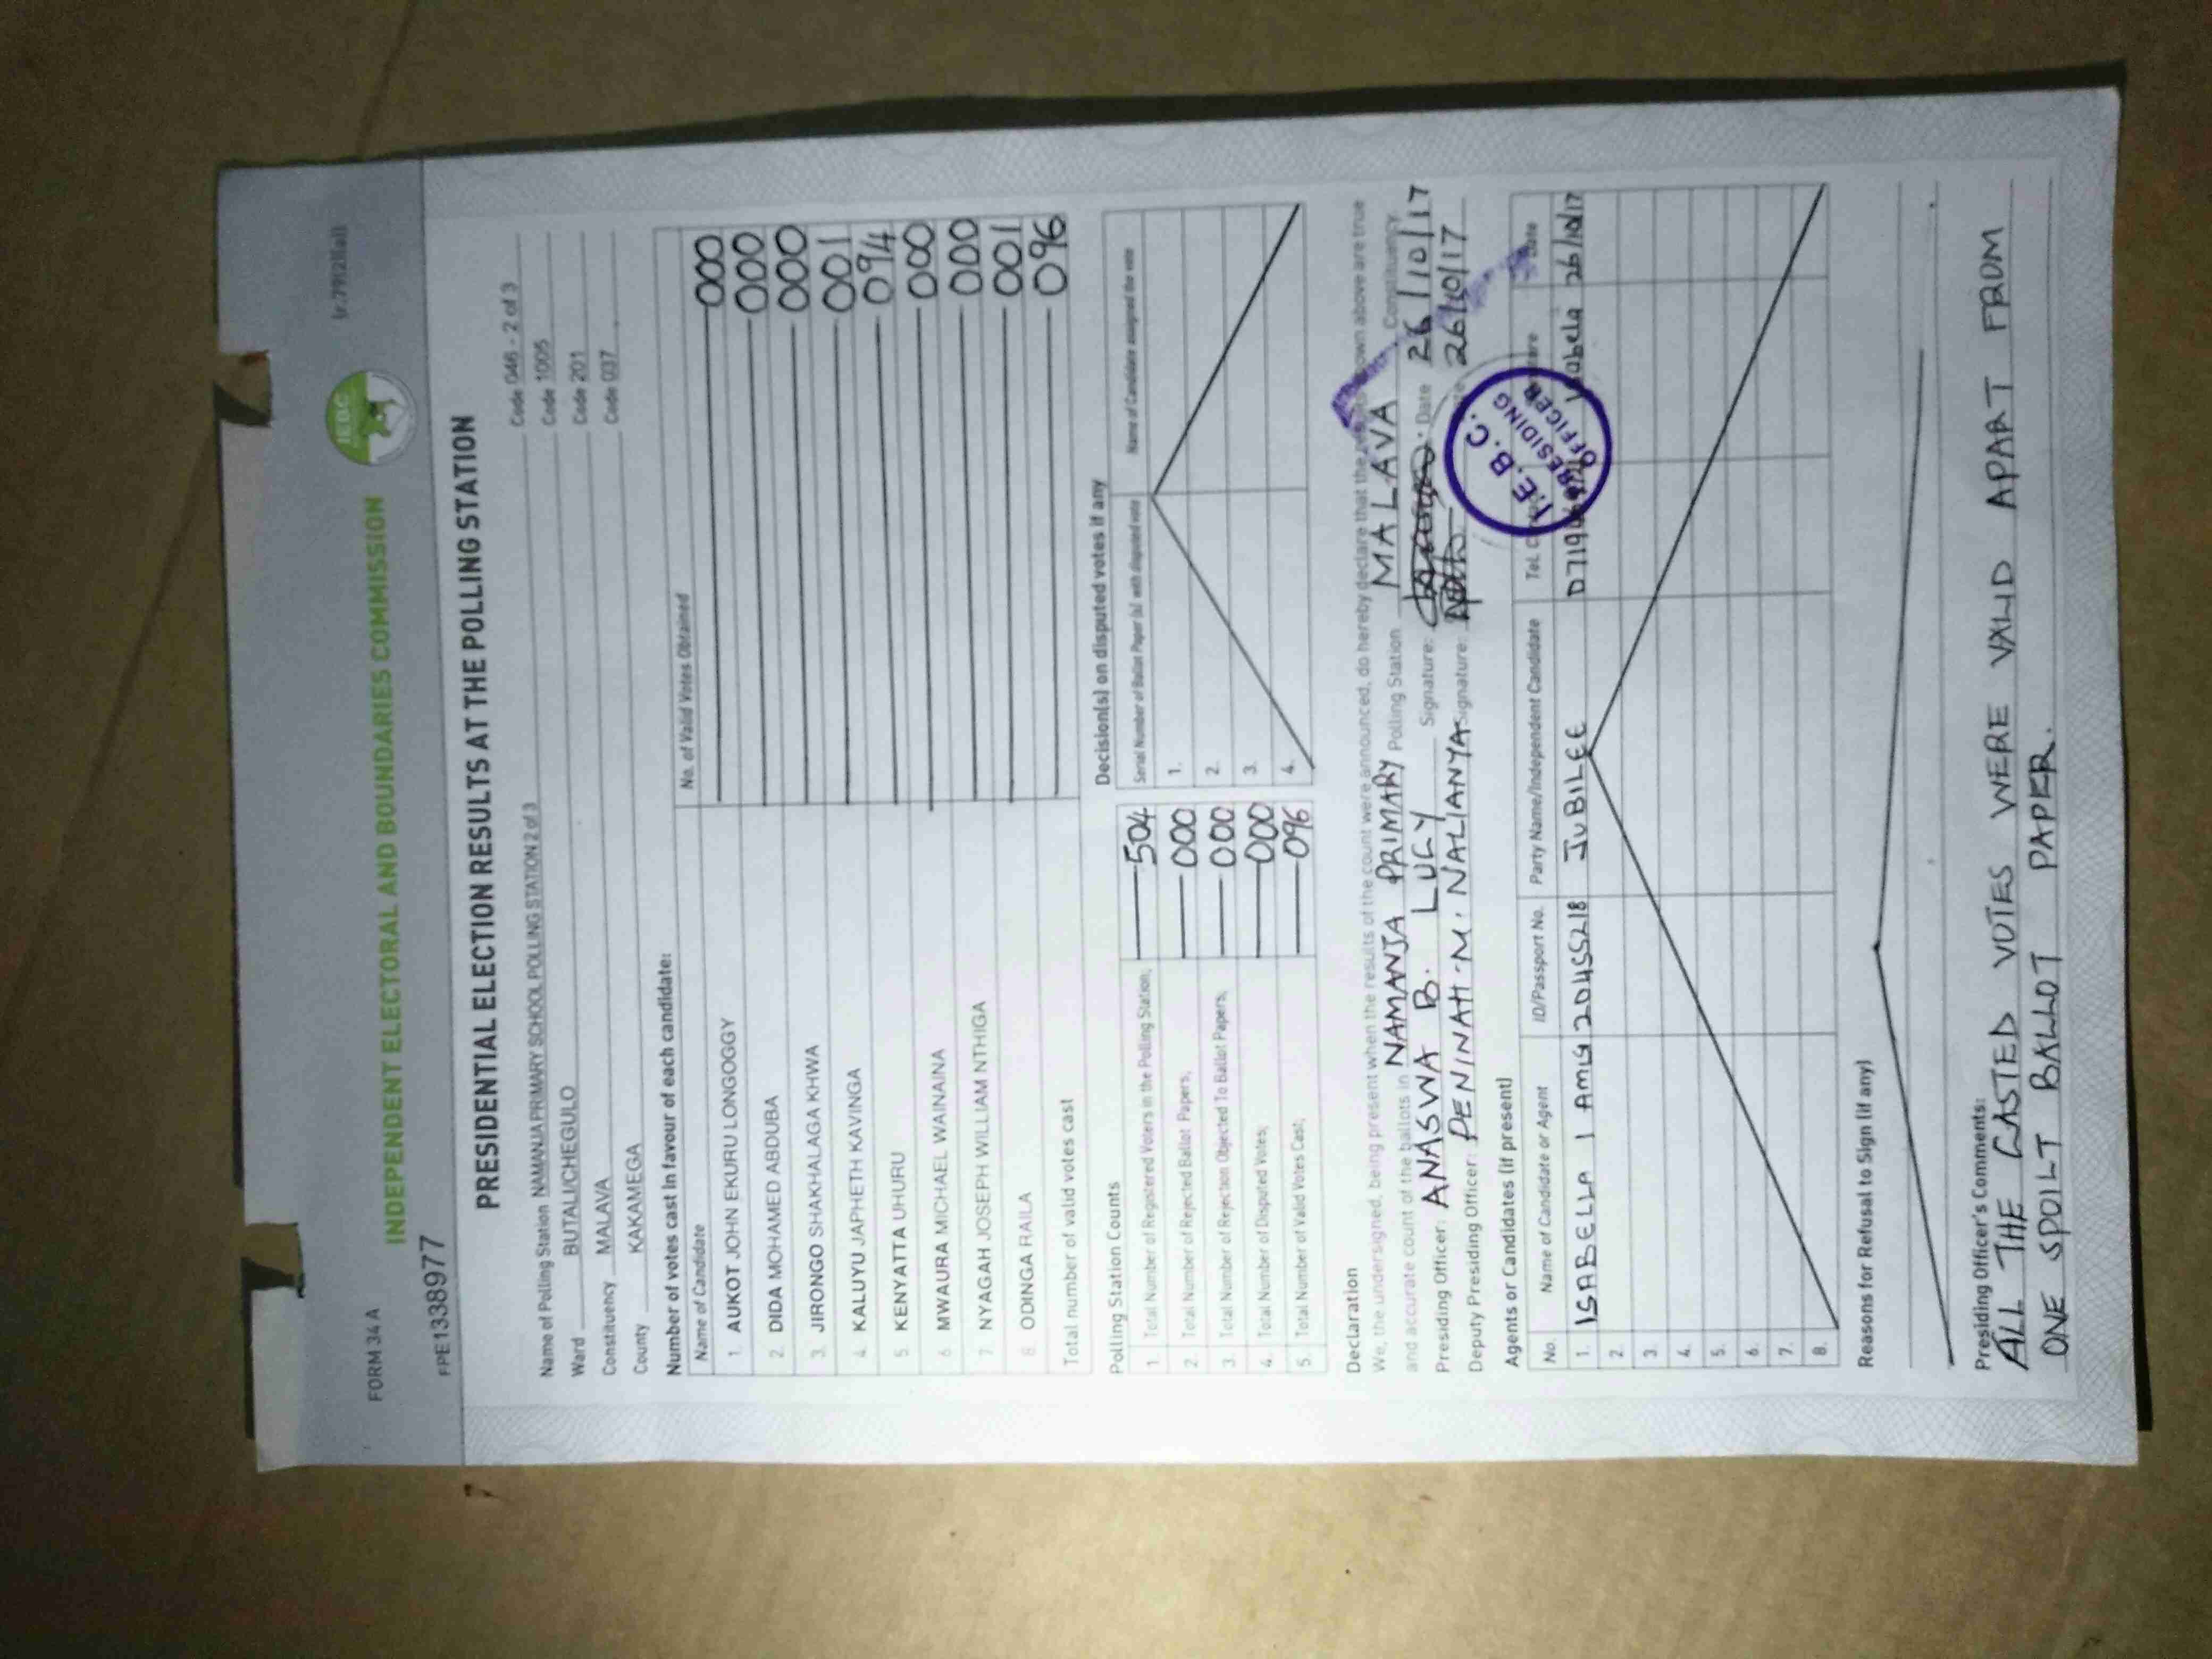 FORM 34 A
INDEPENDENT ELECTORAL AND BOUNDARIES COMMISSION
I.E.B.C
FPE1338977
PRESIDENTIAL ELECTION RESULTS AT THE POLLING STATION
Name of Polling Station NAMANJA PRIMARY SCHOOL POLLING STATION 2 of 3 Code 046 - 2 of 3
Ward BUTALI/CHEGULO Code 1005
Constituency MALAVA Code 201
County KAKAMEGA Code 037
Number of votes cast in favour of each candidate:
Name of Candidate No. of Valid Votes Obtained
1. AUKOT JOHN EKURU LONGOGGY 000
2. DIDA MOHAMED ABDUBA 000
3. JIRONGO SHAKHALAGA KHWA 000
4. KALUYU JAPHETH KAVINGA 001
5. KENYATTA UHURU 094
6. MWAURA MICHAEL WAINAINA 000
7. NYAGAH JOSEPH WILLIAM NTHIGA 000
8. ODINGA RAILA 001
Total number of valid votes cast 096
Polling Station Counts
1. Total Number of Registered Voters in the Polling Station; 504
2. Total Number of Rejected Ballot Papers; 000
3. Total Number of Rejection Objected To Ballot Papers; 000
4. Total Number of Disputed Votes; 000
5. Total Number of Valid Votes Cast; 096
Decision(s) on disputed votes if any
Serial Number of Ballot Paper (s) with disputed vote Name of Candidate assigned the vote
1.
2.
3.
4.
Declaration
We, the undersigned, being present when the results of the count were announced, do hereby declare that the shown above are true
and accurate count of the ballots in NAMANJA PRIMARY Polling Station MALAVA Constituency
Presiding Officer: ANASWA B. LUCY Signature: Date 26/10/17
Deputy Presiding Officer: PENINAH M. NALIANYA Signature: 26/10/17
I.E.B.C.
PRESIDING
OFFICER
Agents or Candidates (if present)
No. Name of Candidate or Agent ID/Passport No. Party Name/Independent Candidate Tel. Date
1. ISABELLA 20455218 JUBILEE 26/10/17
2.
3.
4.
5.
6.
7.
8.
Reasons for Refusal to Sign (if any)
Presiding Officer's Comments:
ALL THE CASTED VOTES WERE VALID APART FROM
ONE SPOILT BALLOT PAPER.